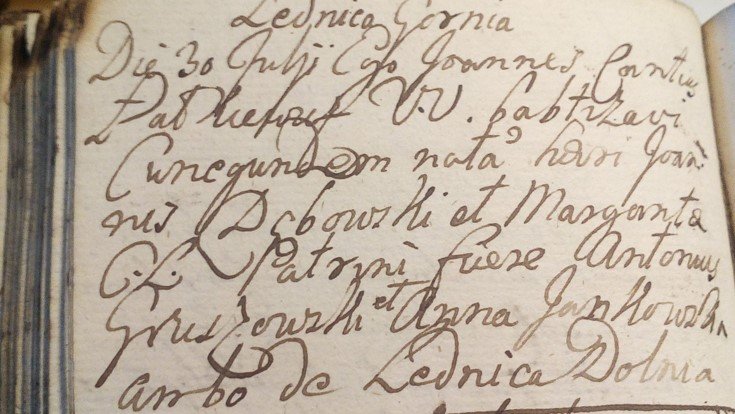 Lednica Gornia
Die 30 Julij Ego Joannes Cantius
V.V. babtizavi
Cunegundem nata heri Joan
nis Dębowski et Margarita
C.L. Patrini fuere Antonius
Gruszowski et Anna Jankowska
ambo de Lednica Dolnia